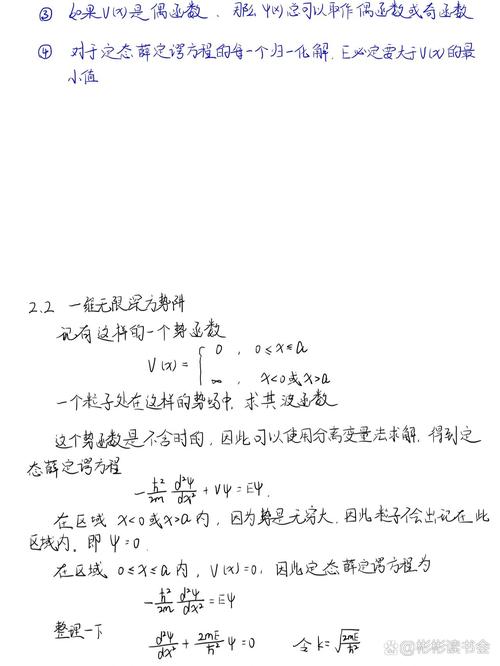 ③ 如果V(x)是偶函数、那么ψ(x)总可以取作偶函数或奇函数
④ 对于定态薛定谔方程的每一个归一化解, E必定要大于V(x)的最
小值
2.2 一维无限深方势阱
记有这样的一个势函数
V(x) = { 0 , 0≤x≤a
∞ , x<0或x>a
一个粒子处在这样的势场中, 求其波函数
这个势函数是不含时的, 因此可以使用分离变量法求解, 得到定
态薛定谔方程
-ħ²/2m d²ψ/dx² + Vψ = Eψ.
在区域 x<0或x>a内, 因为势是无穷大, 因此粒子不会出现在此
区域内, 即 ψ=0.
在区域 0≤x≤a内, V(x)=0, 因此定态薛定谔方程为
-ħ²/2m d²ψ/dx² = Eψ
整理一下
d²ψ/dx² + 2mE/ħ² ψ = 0 令 k=√(2mE/ħ²)
@彬彬读书会